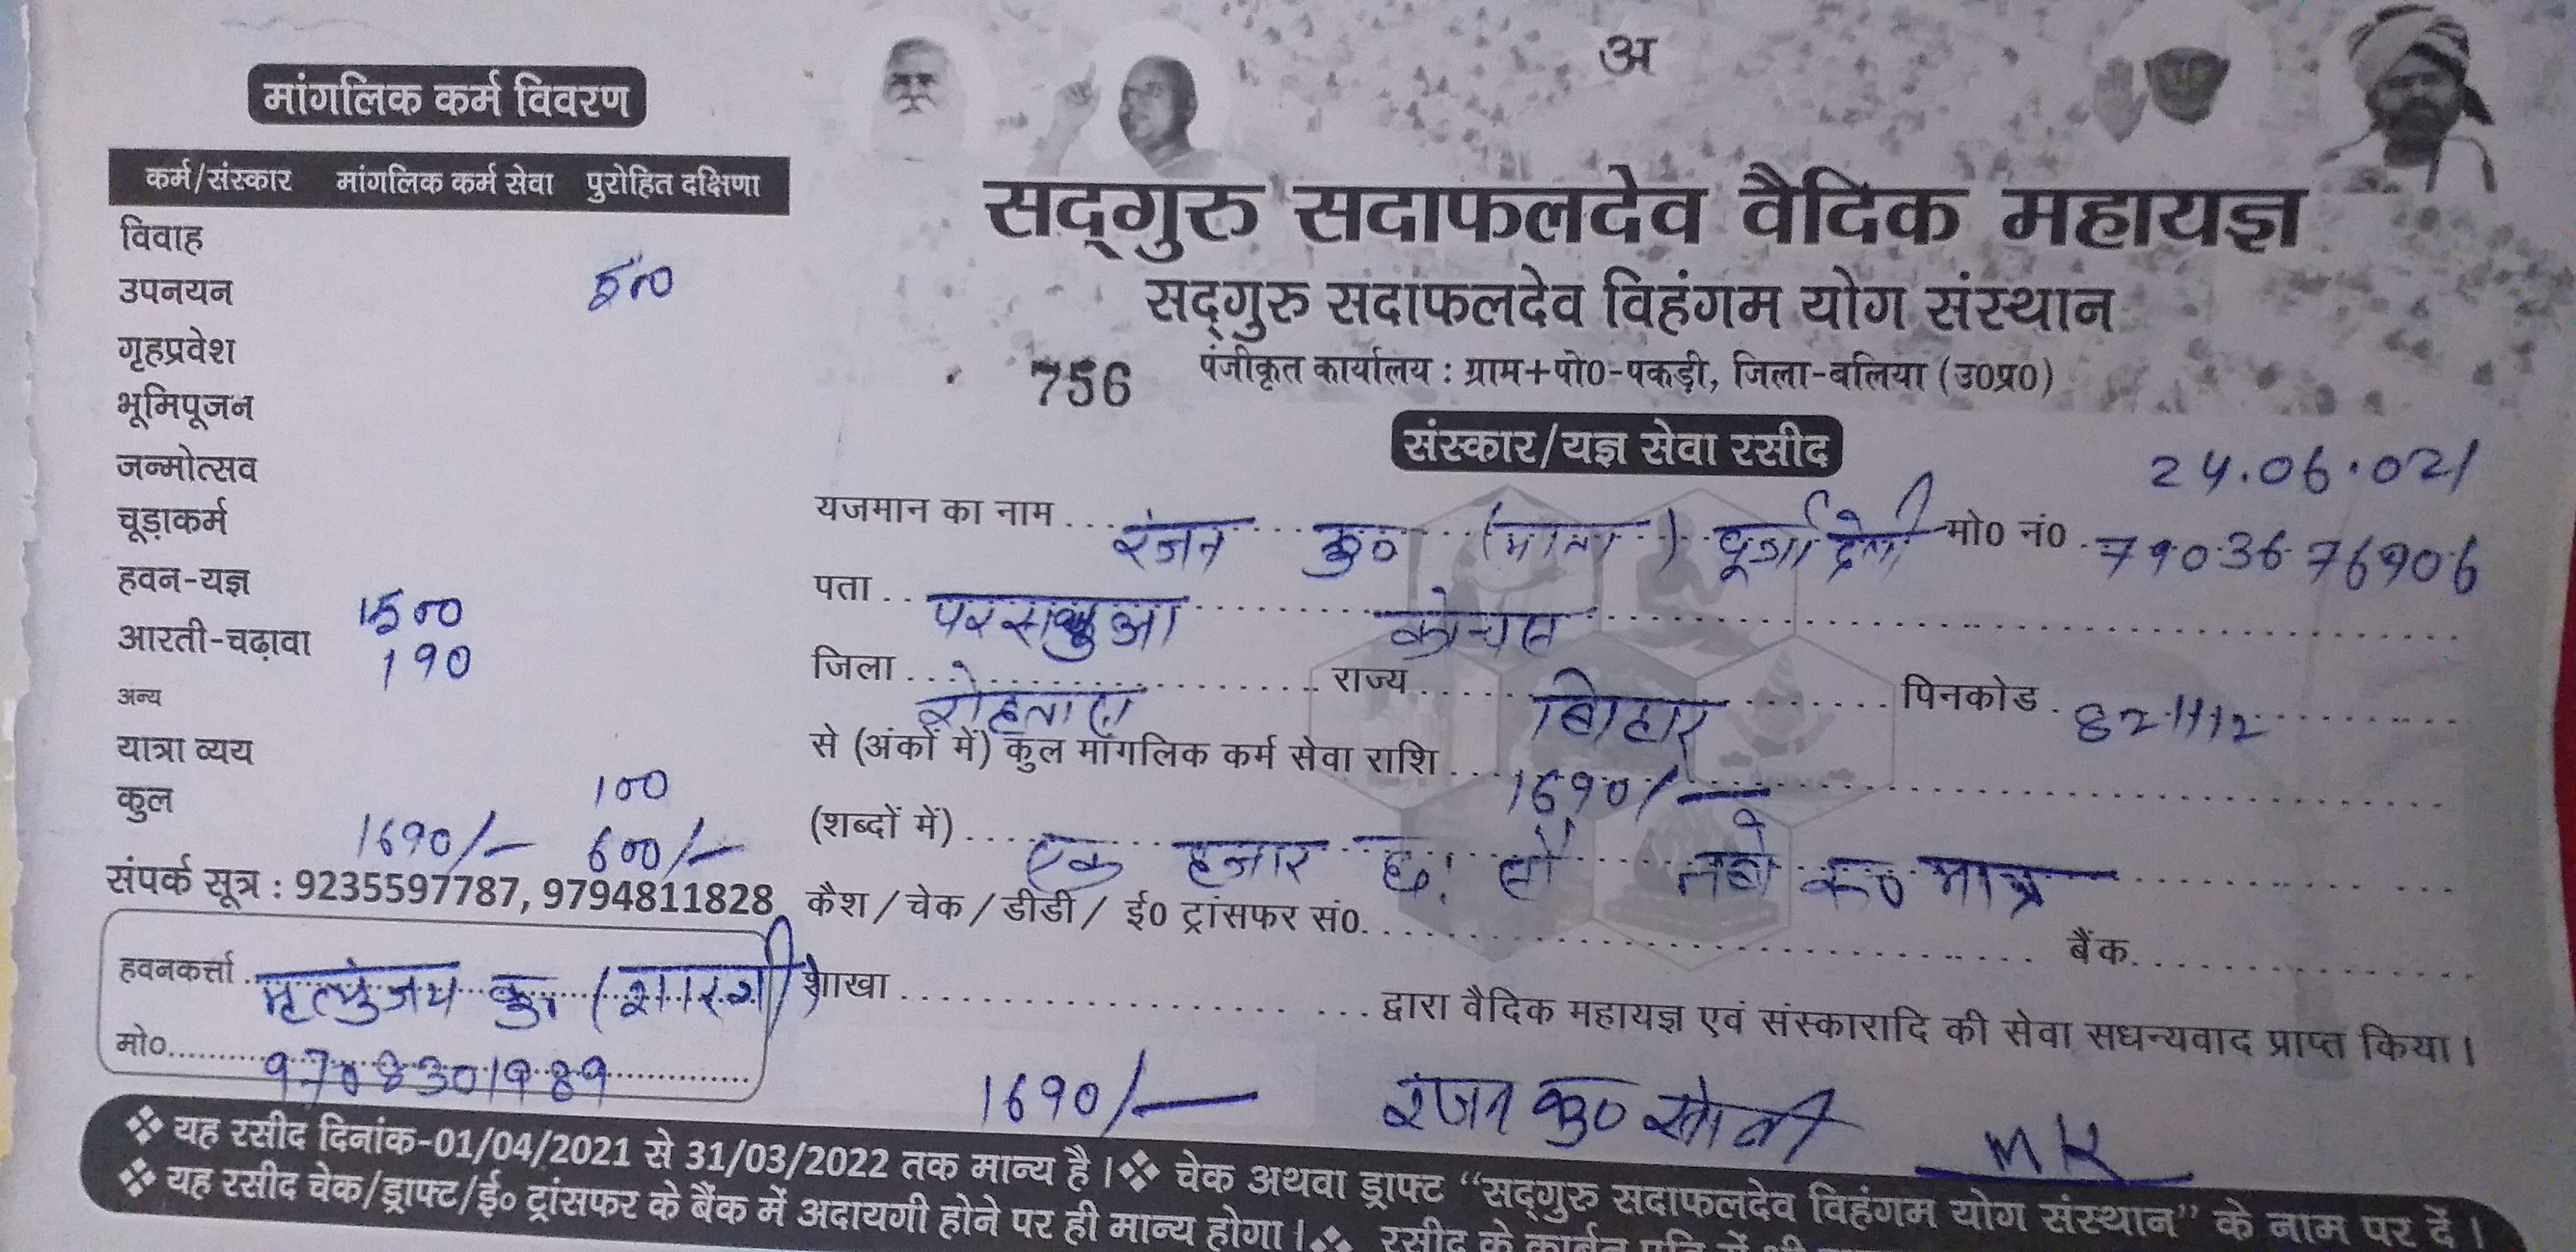 अ
मांगलिक कर्म विवरण
कर्म/संस्कार मांगलिक कर्म सेवा पुरोहित दक्षिणा
विवाह
उपनयन 500
गृहप्रवेश
भूमिपूजन
जन्मोत्सव
चूड़ाकर्म
हवन-यज्ञ
1500
आरती-चढ़ावा
190
अन्य
यात्रा व्यय
100
कुल
1690/- 600/-
संपर्क सूत्र : 9235597787, 9794811828
हवनकर्त्ता मृत्युंजय कु०
मो० 9708301989
सद्‌गुरु सदाफलदेव वैदिक महायज्ञ
सद्‌गुरु सदाफलदेव विहंगम योग संस्थान
756 पंजीकृत कार्यालय : ग्राम+पो0-पकड़ी, जिला-बलिया (उ0प्र0)
संस्कार/यज्ञ सेवा रसीद
24.06.021
यजमान का नाम रंजन कु० (माता) देवी मो0 नं0 7903676906
पता कोचस
जिला रोहतास राज्य बिहार पिनकोड 821112
से (अंकों में) कुल मांगलिक कर्म सेवा राशि 1690/-
(शब्दों में) एक हजार छः सौ नब्बे रू० मात्र
कैश / चेक / डीडी / ई0 ट्रांसफर सं0 बैंक
शाखा द्वारा वैदिक महायज्ञ एवं संस्कारादि की सेवा सधन्यवाद प्राप्त किया।
1690/- रंजन कु० सोनी MK
❖ यह रसीद दिनांक-01/04/2021 से 31/03/2022 तक मान्य है। ❖ चेक अथवा ड्राफ्ट “सद्‌गुरु सदाफलदेव विहंगम योग संस्थान” के नाम पर दें।
❖ यह रसीद चेक/ड्राफ्ट/ई० ट्रांसफर के बैंक में अदायगी होने पर ही मान्य होगा। ❖ रसीद के कार्बन